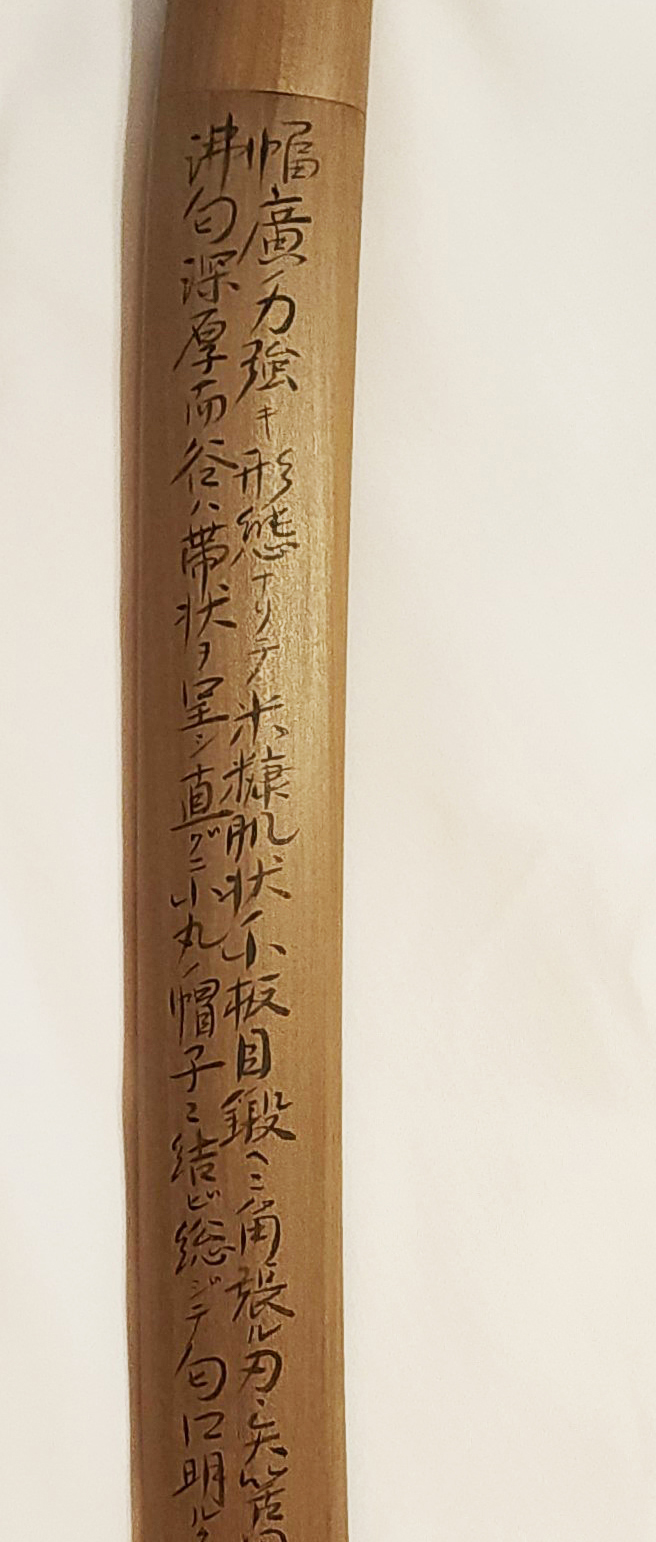 幅廣ノ力強キ形態ナリテ米糠肌状小板目鍛ヘニ角張ル刃ニ矢筈
沸匂深厚而谷ハ帯状ヲ呈シ直グニ小丸ノ帽子ニ結ビ総ジテ匂口明ルク